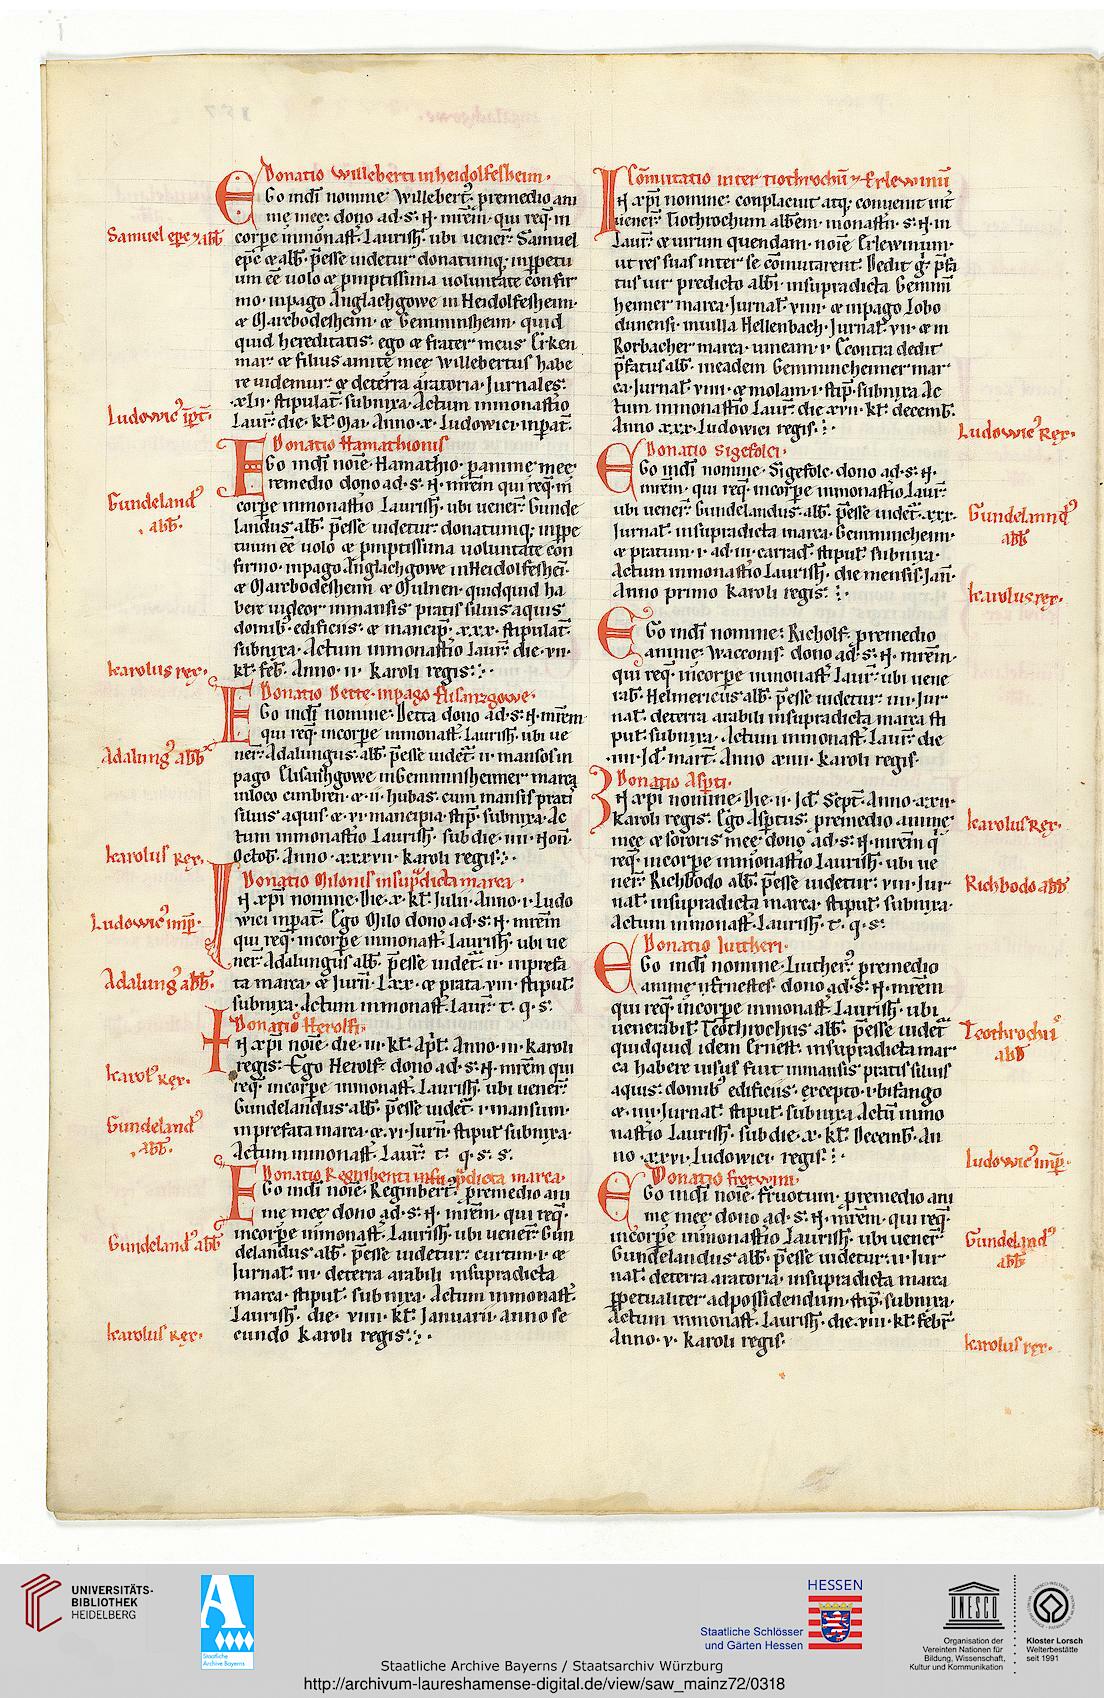 Donatio Willeberti in heidolfesheim.
Ego indi nomine Willebert' premedio ani
me mee dono ad .s. N. mrem. qui req. in
Samuel epc & abb
corpe inmonast. Laurish. ubi uener. Samuel
epc & abb. pesse uidetur donatumq. inppetu
um ee uolo & pmptissima uoluntate confir
mo. inpago Anglachgowe in Heidolfesheim.
& Marbodesheim. & Gemminsheim. quid
quid hereditatis. ego & frater meus Erken
mar. & filius amite mee Willebertus habe
re uidemur. & deterra aratoria. Jurnales.
Ludowic' ipat.
xlii. stipulat. subnixa. Actum inmonastio
Laur. die. kl. Mai. Anno .x. Ludowici inpat.
Donatio Hamathionis
Ego indi noie. Hamathio. p anime mee
remedio dono ad .s. N. mrem qui req. in
Gundeland'
abb.
corpe inmonastio Laurish. ubi uener. Gunde
landus abb. pesse uidetur. donatumq. inppe
tuum ee uolo & pmptissima uoluntate con
firmo. inpago Anglachgowe in Heidolfeshei.
& Marbodesheim & Mulnen. quidquid ha
bere uideor inmansis pratis siluis aquis
domib. edificiis. & mancip. xxx. stipulat.
subnixa. Actum inmonastio Laur. die. vii.
karolus rex.
kl. feb. Anno .ii. Karoli regis.
Donatio Dette. inpago Elisanzgowe.
Ego indi nomine. Detta dono ad .s. N. mrem
qui req. incorpe inmonast. Laurish. ubi ue
Adalung' abb
ner. Adalungus. abb. pesse uidet. ii. mansos in
pago Elisashgowe inGemminsheimer marca
inloco cunbren. & ii. hubas. cum mansis prati
siluis aquis. & vi. mancipia. stip. subnixa. Ac
tum inmonastio Laurish. sub die. iiii. Non.
karolus rex.
Octob. Anno .xxxvii. Karoli regis.
Donatio Milonis insupdicta marca.
In xpi nomine. Die .x. kl. Julii. Anno .i. Ludo
Ludowic' imp.
wici inpat. Ego Milo dono ad .s. N. mrem
qui req. incorpe inmonast. Laurish. ubi ue
ner. Adalungus abb. pesse uidet. ii. inprefa
Adalung' abb.
ta marca. & Jurn. Lxx. & prata. viii. stipul.
subnixa. Actum inmonast. Laur. t. q. s.
Donatio Herolfi.
In xpi noie. die. iii. kl. Apl. Anno .iii. karoli
karol' rex.
regis. Ego Herolf. dono ad .s. N. mrem qui
req. incorpe inmonast. Laurish. ubi uener.
Gundeland'
abb.
Gundelandus abb. pesse uidet. i. mansum.
inprefata marca. & vi. Jurn. stipul. subnixa.
Actum inmonast. Laur. t. q. s. s.
Donatio Reginberti insupdicta marca.
Ego indi noie. Reginbert'. premedio ani
me mee. dono ad .s. N. mrem. qui req.
Gundeland' abb
incorpe inmonast. Laurish. ubi uener. Gun
delandus abb. pesse uidetur. curtim. i. &
Jurnal. iii. deterra arabili insupradicta
marca. stipul. subnixa. Actum inmonast.
Laurish. die. viiii. kl. Januarii. anno se
karolus rex.
cundo Karoli regis.
Comutatio inter Tiothrochu & Erlewinu
In xpi nomine. conplacuit atq. conuenit int
uener. Tiothrochum abbem. monastii. s. N. in
Laur. & uirum quendam. noie Erlewinum.
ut res suas inter se comutarent. Dedit g. pfa
tus uir predicto abbi. insupradicta Gemmi
heimer marca. Jurnal. viiii. & inpago Lobo
dunensi. inuilla Hellenbach. Jurnal. vii. & in
Rorbacher marca. uineam. i. Econtra dedit
pfatus abb. ineadem Gemmincheimer mar
ca. Jurnal. viii. & molam. i. stip. subnixa. Ac
tum inmonastio Laur. die. xvii. kl. decemb.
Anno .xxx. Ludowici regis.
Ludowic' Rex.
Donatio Sigefolci.
Ego indi nomine. Sigefolc. dono ad .s. N.
mrem. qui req. incorpe inmonastio Laur.
ubi uener. Gundelandus. abb. pesse uidet. xxx.
Gundelannd'
abb
Jurnal. insupradicta marca. Gemmincheim.
& pratum. i. ad .iii. carrad. stipul. subnixa.
Actum inmonastio Laurish. die mensis. Jan.
Anno primo Karoli regis.
karolus rex.
Ego indi nomine. Richolf. premedio
anime. Wacconis. dono ad .s. N. mrem.
qui req. incorpe inmonast. Laur. ubi uene
rab. Helmericus abb. pesse uidetur. iiii. Jur
nal. deterra arabili insupradicta marca sti
pul. subnixa. Actum inmonast. Laur. die
iiii. Id. mart. Anno .xiiii. Karoli regis.
Donatio Aspti.
In xpi nomine. Die. ii. Id. Sept. Anno .xxii.
karolus Rex.
Karoli regis. Ego Asptus. premedio anime
mee & sororis mee dono ad .s. N. mrem q
req. incorpe inmonastio Laurish. ubi ue
ner. Richbodo abb. pesse uidetur. viii. Jur
Richbodo abb
nal. insupradicta marca. stipul. subnixa.
Actum inmonast. Laurish. t. q. s.
Donatio luttheri.
Ego indi nomine. Luither'. premedio
anime Ernestes. dono ad .s. N. mrem
qui req. incorpe inmonast. Laurish. ubi
uenerabil. Teothrochus abb. pesse uidet
Teothrochu'
abb
quidquid idem Ernest. insupradicta mar
ca habere uisus fuit inmansis pratis siluis
aquis. domib' edificiis. excepto. i. bifango
& iiii. Jurnal. stipul. subnixa. Actu inmo
nastio Laurish. sub die. x. kl. Decemb. An
no .xxvi. Ludowici regis.
Ludowic' imp.
Donatio frotwini.
Ego indi noie. Fruotuin. premedio ani
me mee. dono ad .s. N. mrem. qui req.
incorpe inmonastio Laurish. ubi uener.
Gundeland'
abb
Gundelandus abb. pesse uidetur. ii. Jur
nal. deterra aratoria. insupradicta marca
ppetualiter adpossidendum. stip. subnixa.
Actum inmonast. Laurish. die. viii. kl. febr.
Anno .v. Karoli regis.
karolus rex.
UNIVERSITÄTS-
BIBLIOTHEK
HEIDELBERG
Staatliche
Archive Bayerns
HESSEN
Staatliche Schlösser
und Gärten Hessen
UNESCO
Organisation der
Vereinten Nationen für
Bildung, Wissenschaft,
Kultur und Kommunikation
Kloster Lorsch
Welterbestätte
seit 1991
Staatliche Archive Bayerns / Staatsarchiv Würzburg
http://archivum-laureshamense-digital.de/view/saw_mainz72/0318